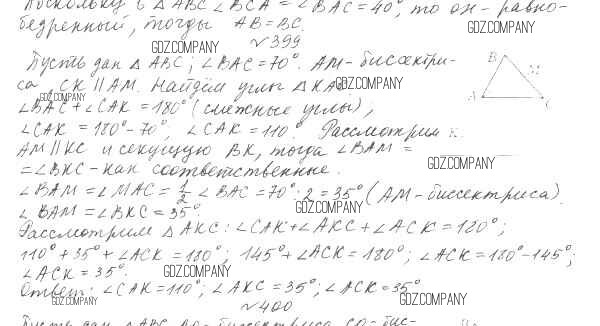 Поскольку в △ABC ∠BCA = ∠BAC = 40°, то он - равно-
бедренный, тогда AB = BC.
GDZ.COMPANY
GDZ.COMPANY
№ 399
Пусть дан △ABC; ∠BAC = 70°. AM - биссектри-
са, CK || AM. Найдём углы △KAC.
GDZ.COMPANY
GDZ.COMPANY
B
M
A
C
∠BAC + ∠CAK = 180° (смежные углы),
∠CAK = 180° - 70°, ∠CAK = 110°. Рассмотрим
K
AM || KC и секущую BK, тогда ∠BAM =
GDZ.COMPANY
= ∠BKC - как соответственные.
∠BAM = ∠MAC = 1/2 ∠BAC = 70° : 2 = 35° (AM - биссектриса).
GDZ.COMPANY
∠BAM = ∠BKC = 35°.
Рассмотрим △AKC: ∠CAK + ∠AKC + ∠ACK = 180°;
110° + 35° + ∠ACK = 180°; 145° + ∠ACK = 180°; ∠ACK = 180° - 145°;
∠ACK = 35°.
GDZ.COMPANY
Ответ: ∠CAK = 110°; ∠AKC = 35°; ∠ACK = 35°
GDZ.COMPANY
GDZ.COMPANY
№ 400
Пусть дан △ABC, AO - биссектриса, CO - бис-